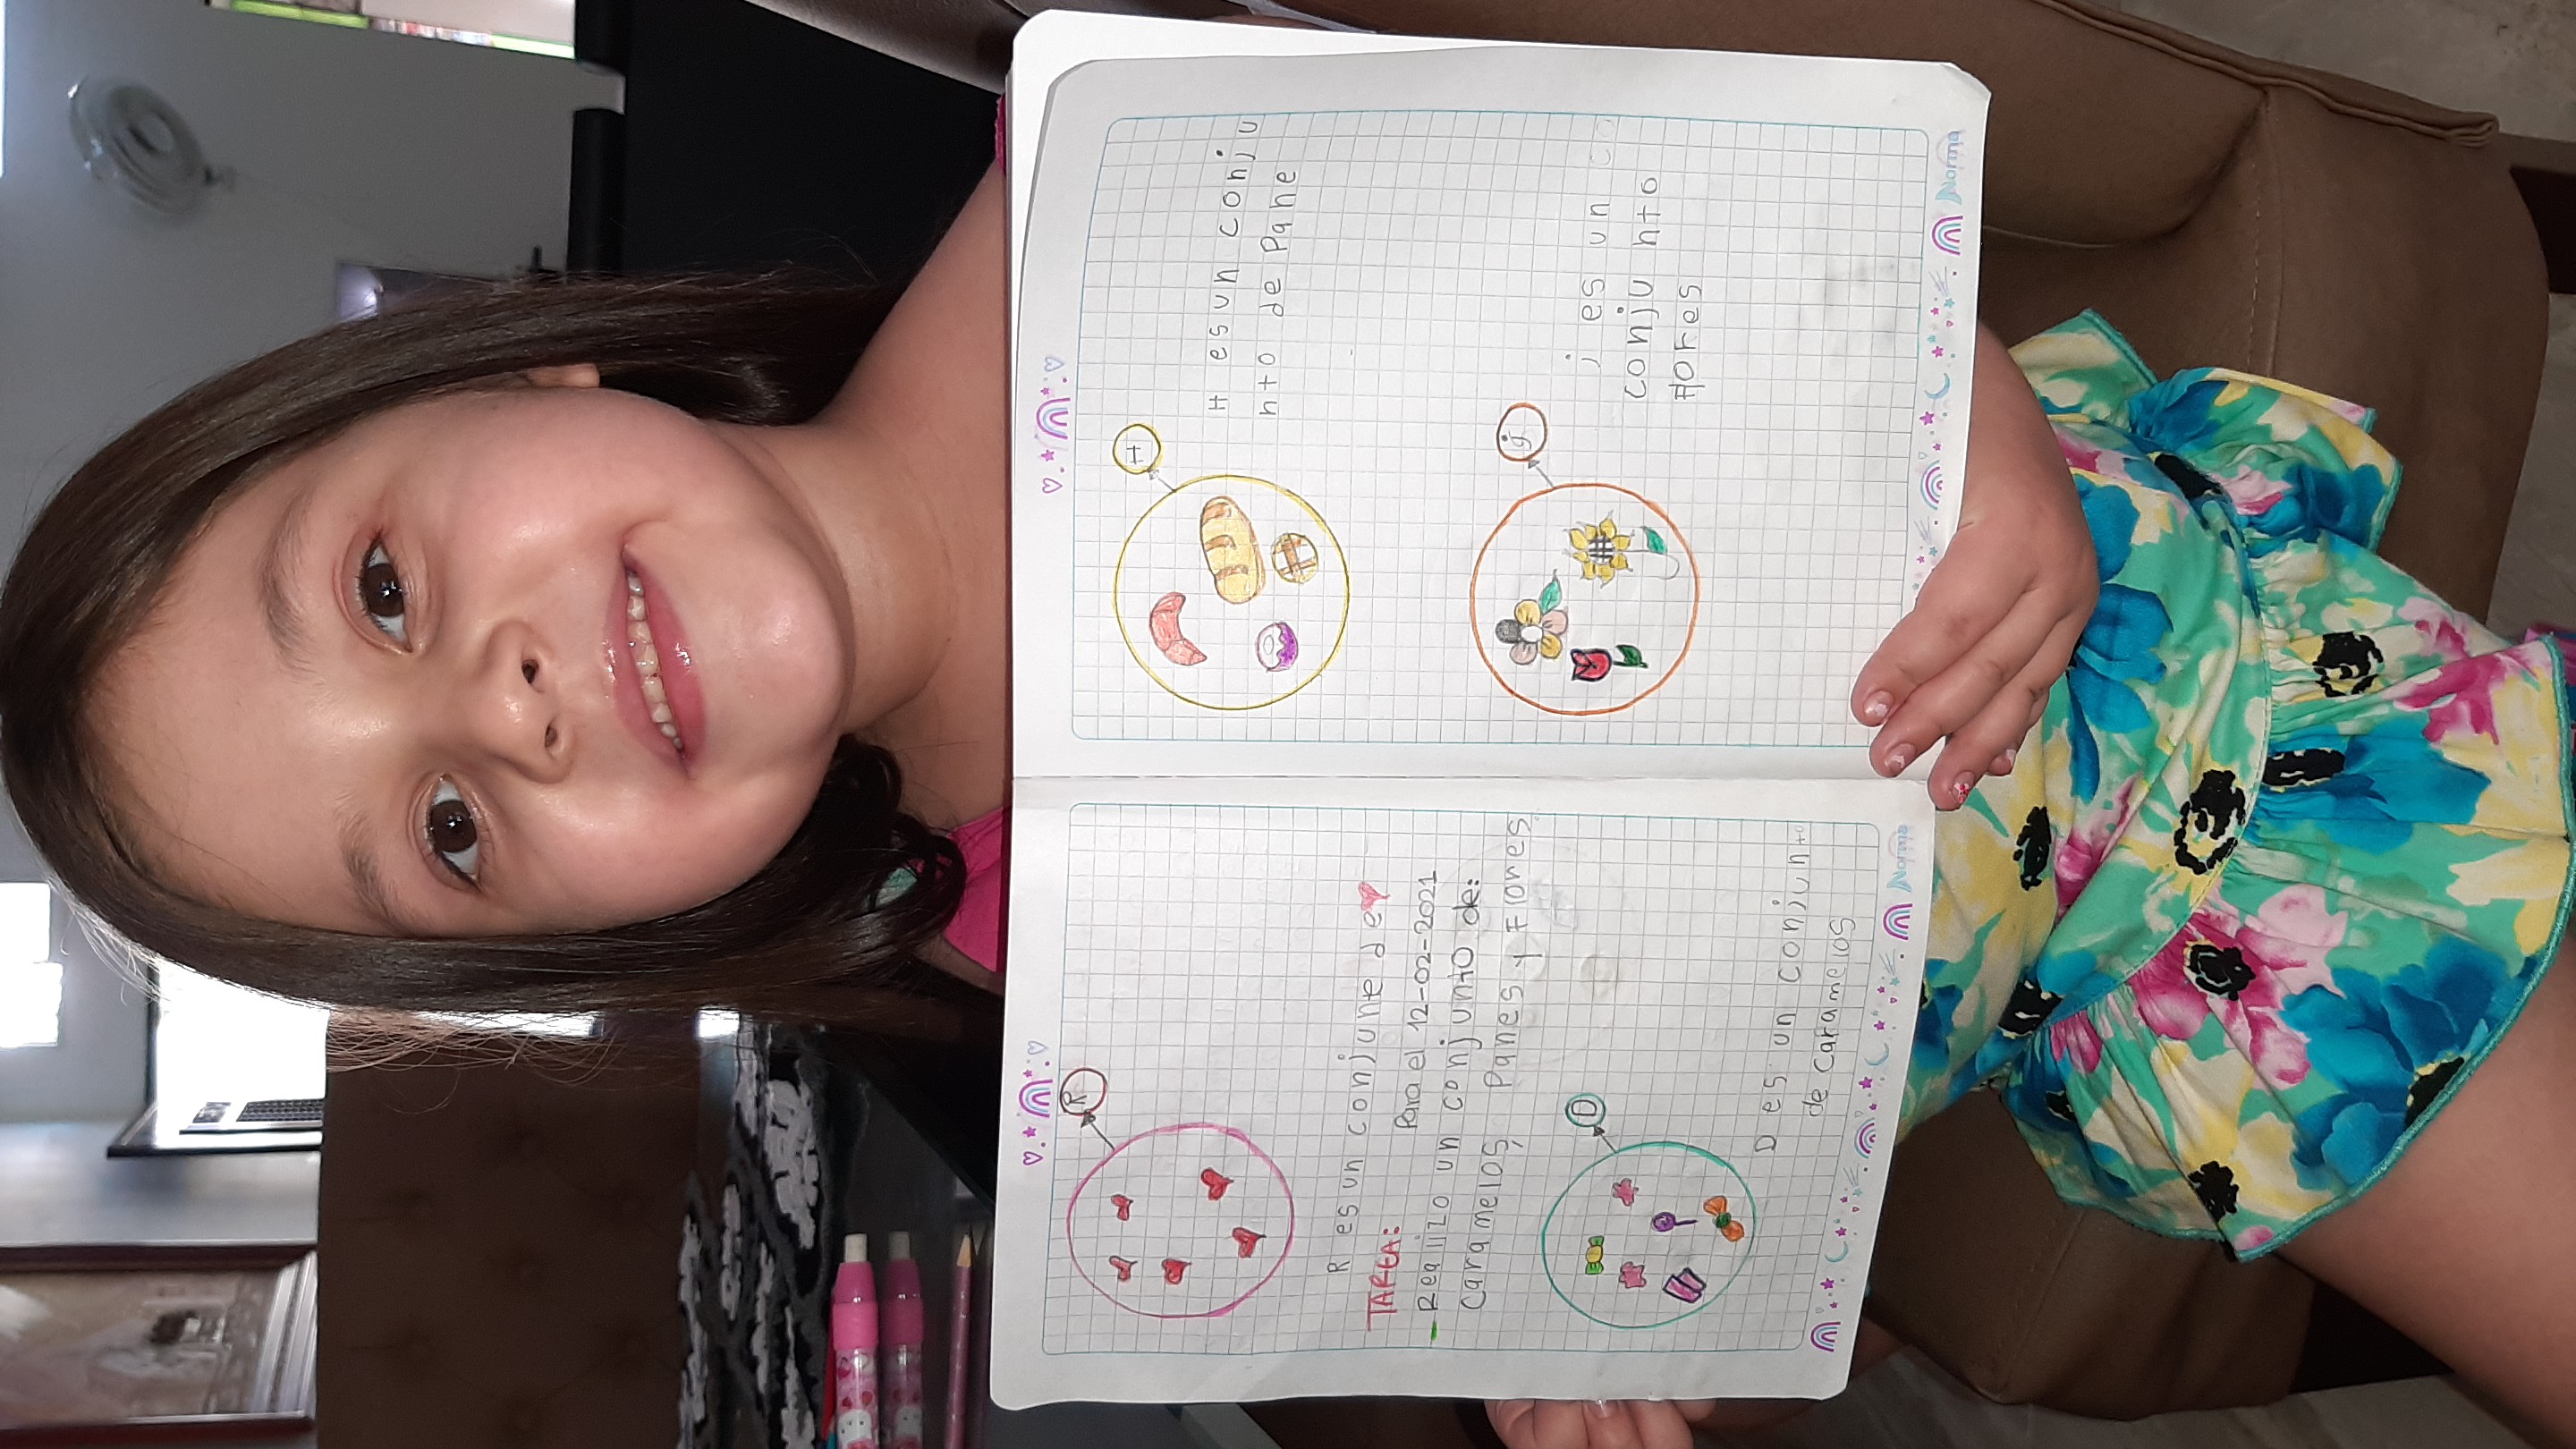 R
R es un conjunte de
TAREA:
Para el 12-02-2021
Realizo un conjunto de:
Caramelos, Panes y Flores.
D
D es un conjunto
de caramelos
Norma
H
H es un conju
nto de Pane
j
j es un co
conju nto
flores
Norma